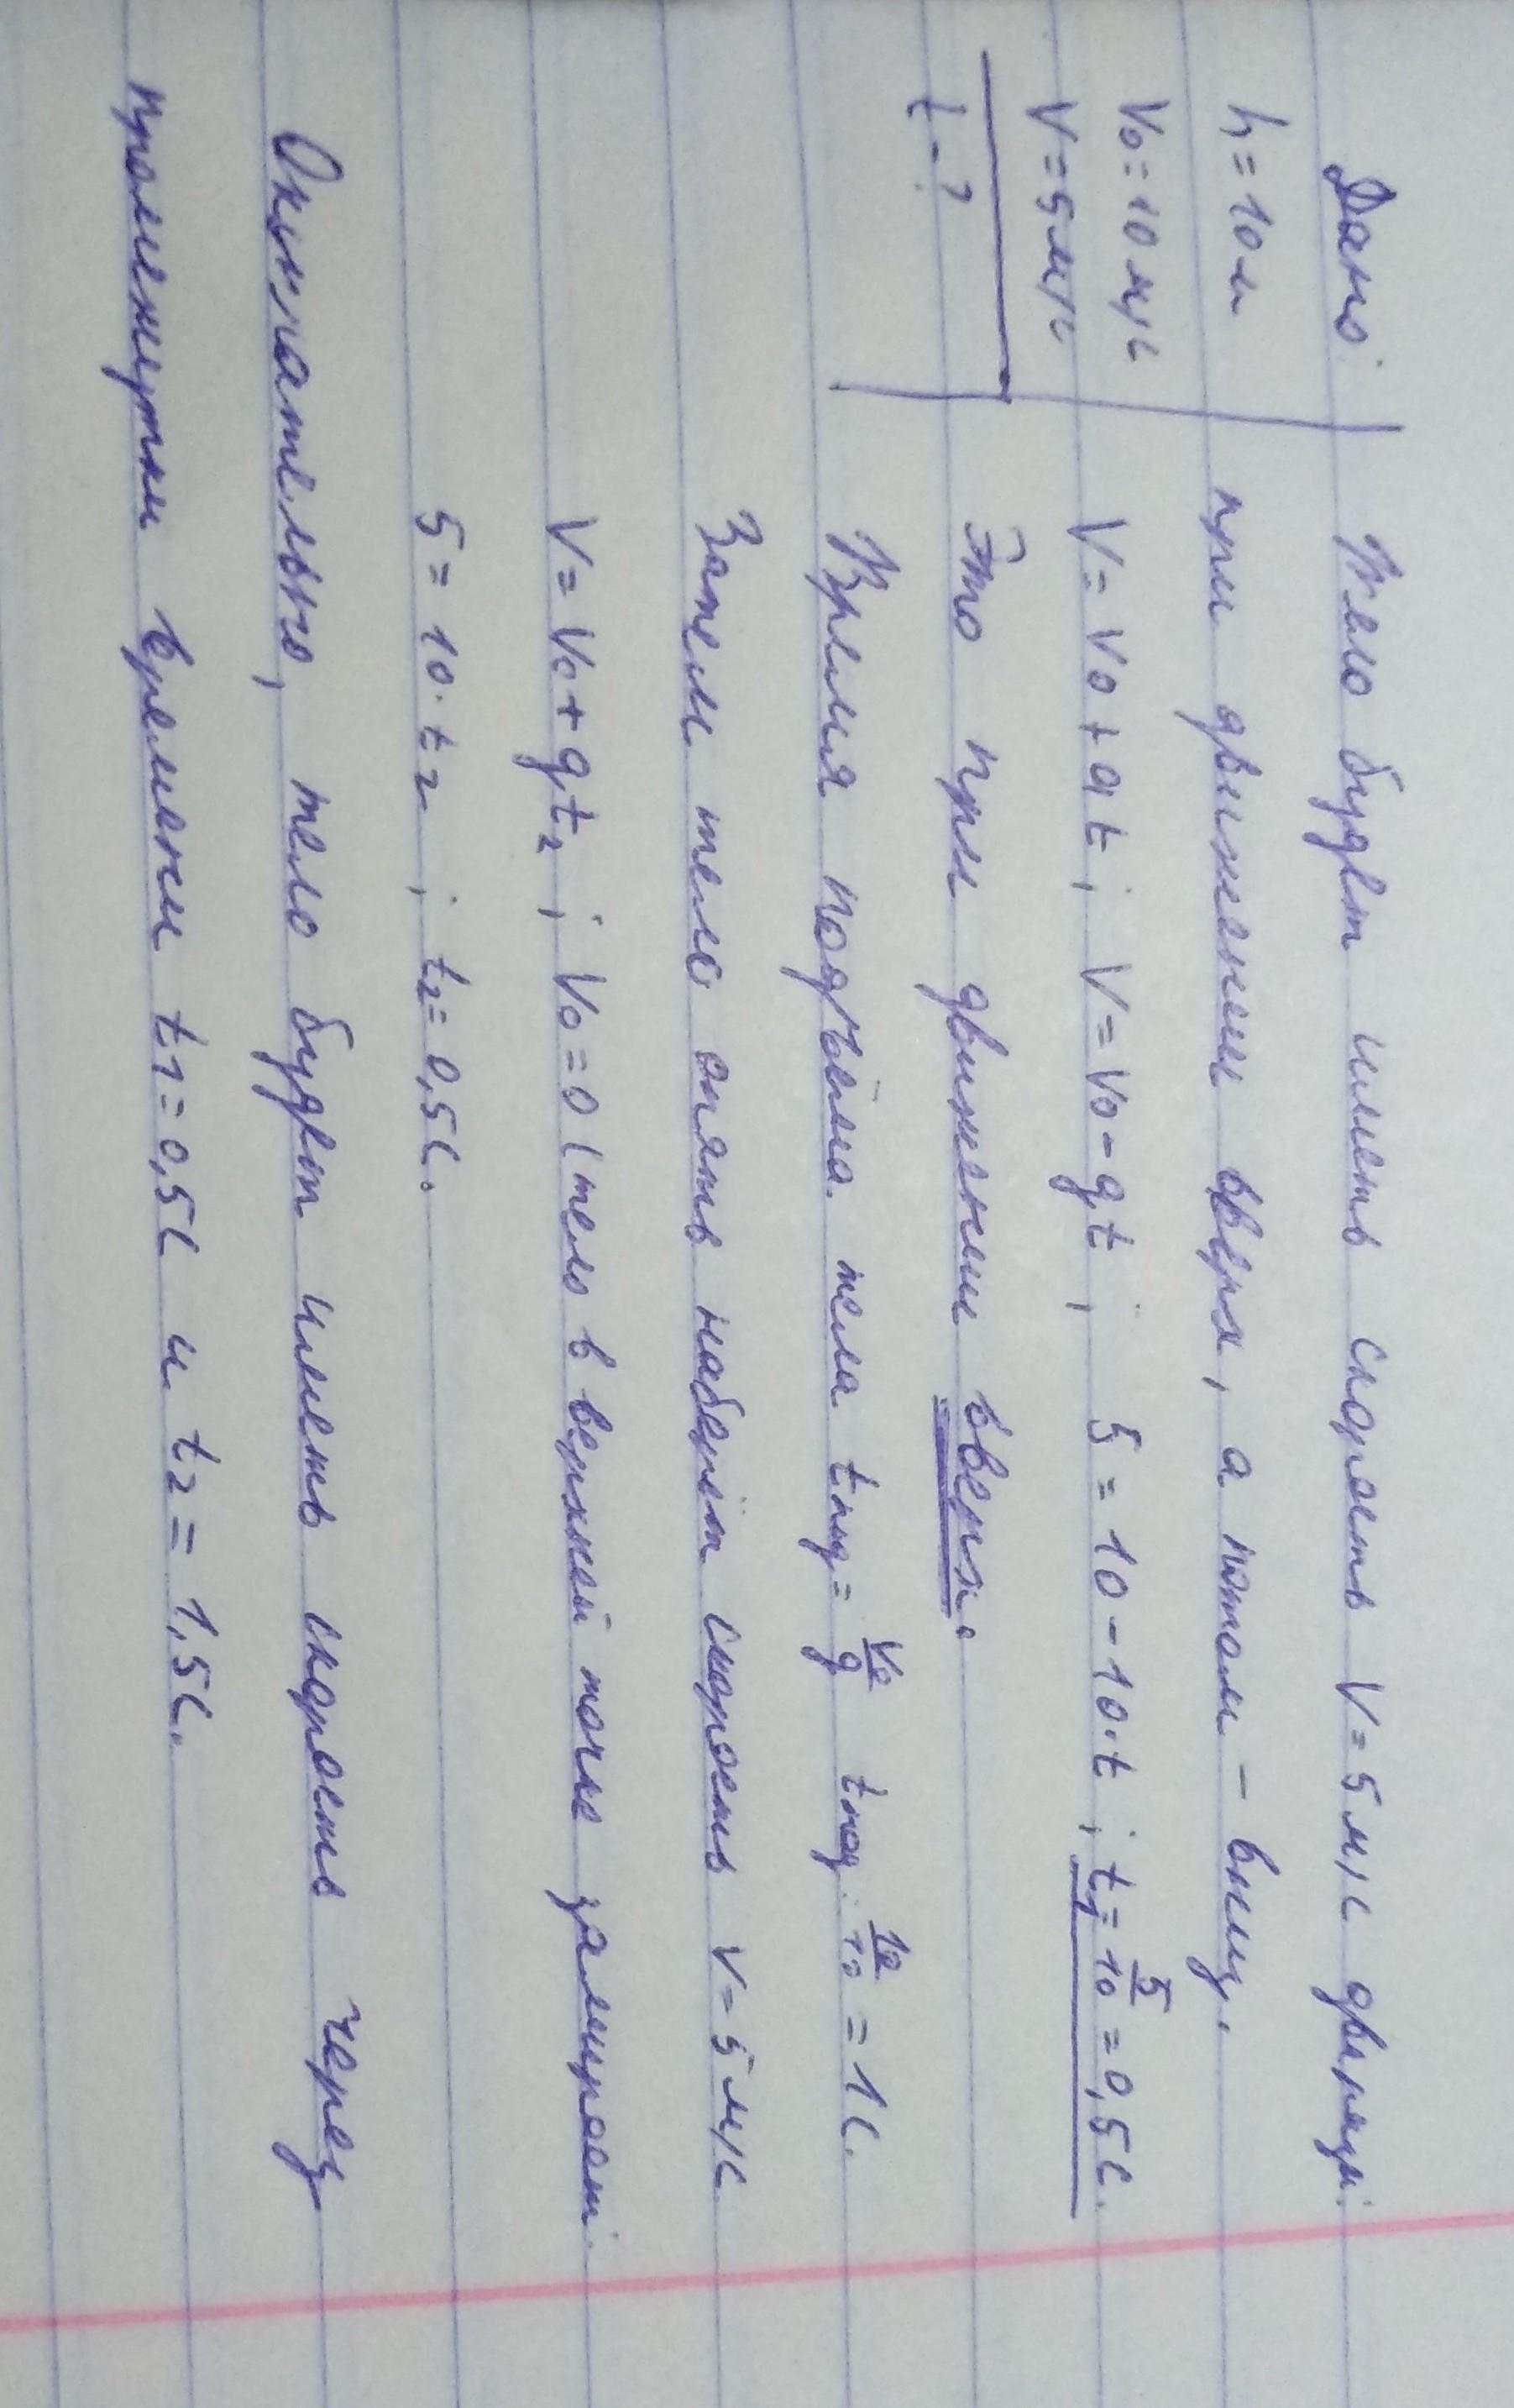 Дано:
h=10м
V₀=10м/с
V=5м/с
t-?
Тело будет иметь скорость V=5м/с дважды:
при движении вверх, а потом - вниз.
V=V₀+at; V=V₀-gt; 5=10-10·t; t₁=5/10=0,5с.
Это при движении вверх.
Время подъёма тела tпод=V₀/g tпод.=10/10=1с.
Затем тело опять наберёт скорость V=5м/с
V=V₀+gt₂; V₀=0 (тело в верхней точке замирает.
5=10·t₂; t₂=0,5с.
Окончательно, тело будет иметь скорость через
промежутки времени t₁=0,5с и t₂=1,5с.